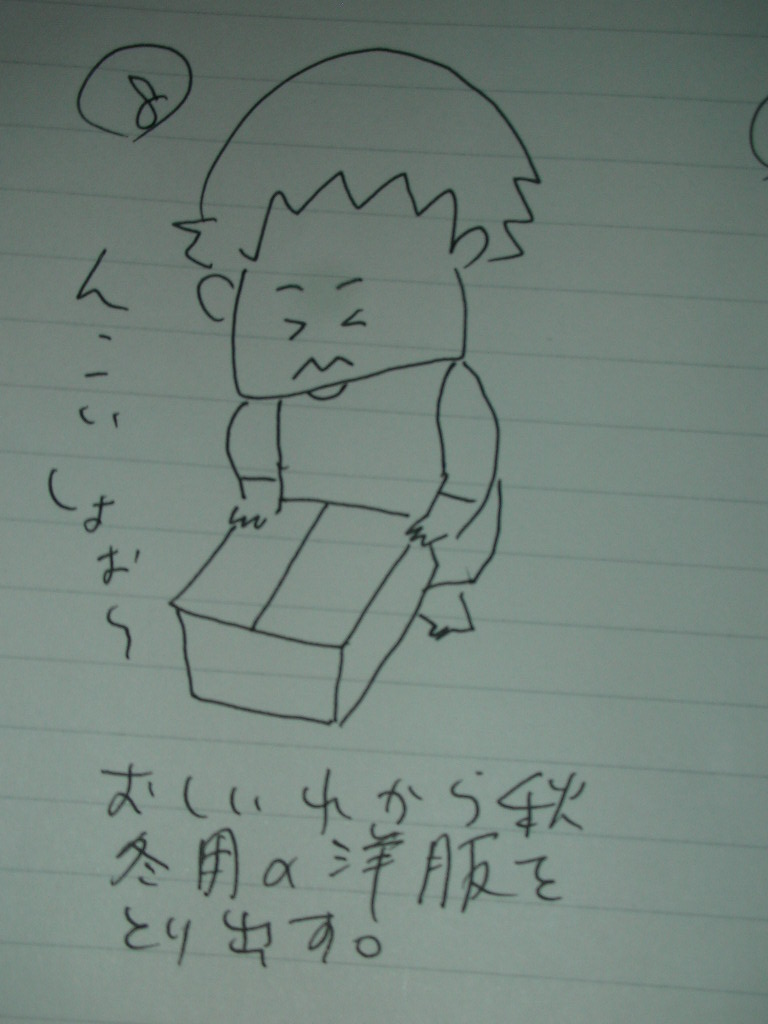 8
んこいしょお〜
おしいれから秋
冬用の洋服を
とり出す。